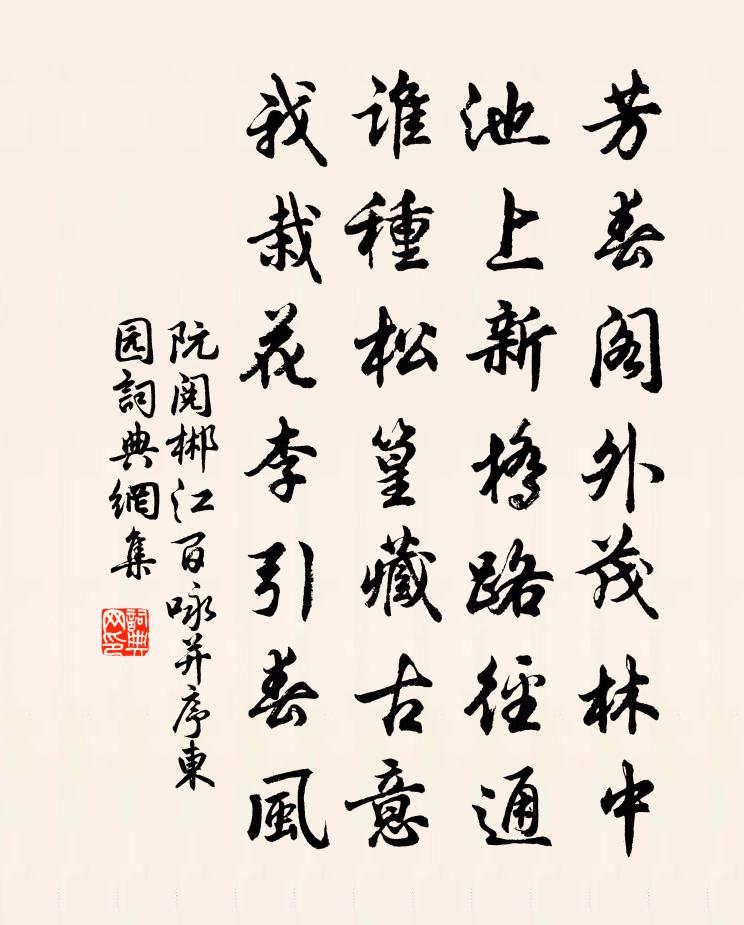 芳春阁外茂林中
池上新橋路徑通
谁種松篁藏古意
我栽花李引春風
阮阅郴江百咏并序東
园詞典網集
詞典网印